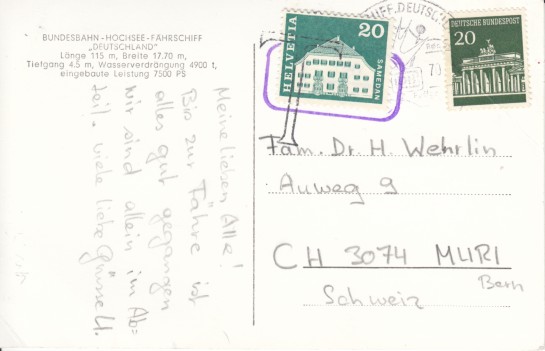 BUNDESBAHN-HOCHSEE-FÄHRSCHIFF
„DEUTSCHLAND"
Länge 115 m, Breite 17.70 m,
Tiefgang 4.5 m, Wasserverdrängung 4900 t,
eingebaute Leistung 7500 PS
Meine lieben „Alle!
Bis zur Fähre ist
alles gut gegangen
wir sind allein im Ab=
teil. viele liebe Grüsse H.
HELVETIA
20
SAMEDAN
T
DEUTSCHE BUNDESPOST
20
Fam. Dr. H. Wehrlin
Auweg 9
CH 3074 MURI
Bern
Schweiz